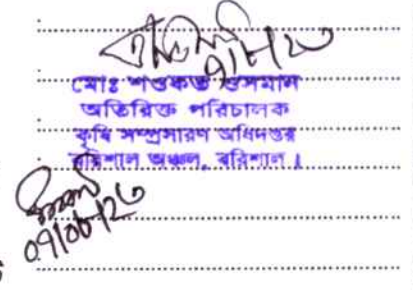 ৭/৮/২৩
মোঃ শওকত ওসমান
অতিরিক্ত পরিচালক
কৃষি সম্প্রসারণ অধিদপ্তর
বরিশাল অঞ্চল, বরিশাল ।
০৭/০৮/২৩